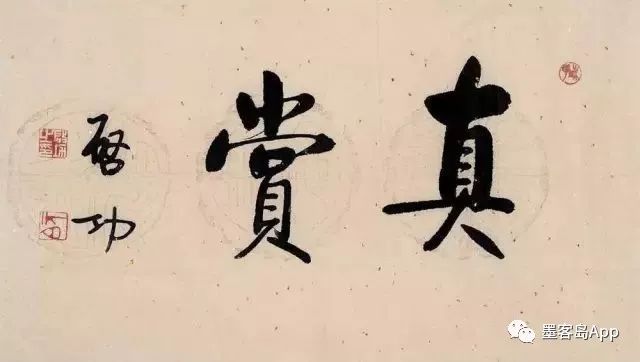 真賞
啓功
墨客岛App